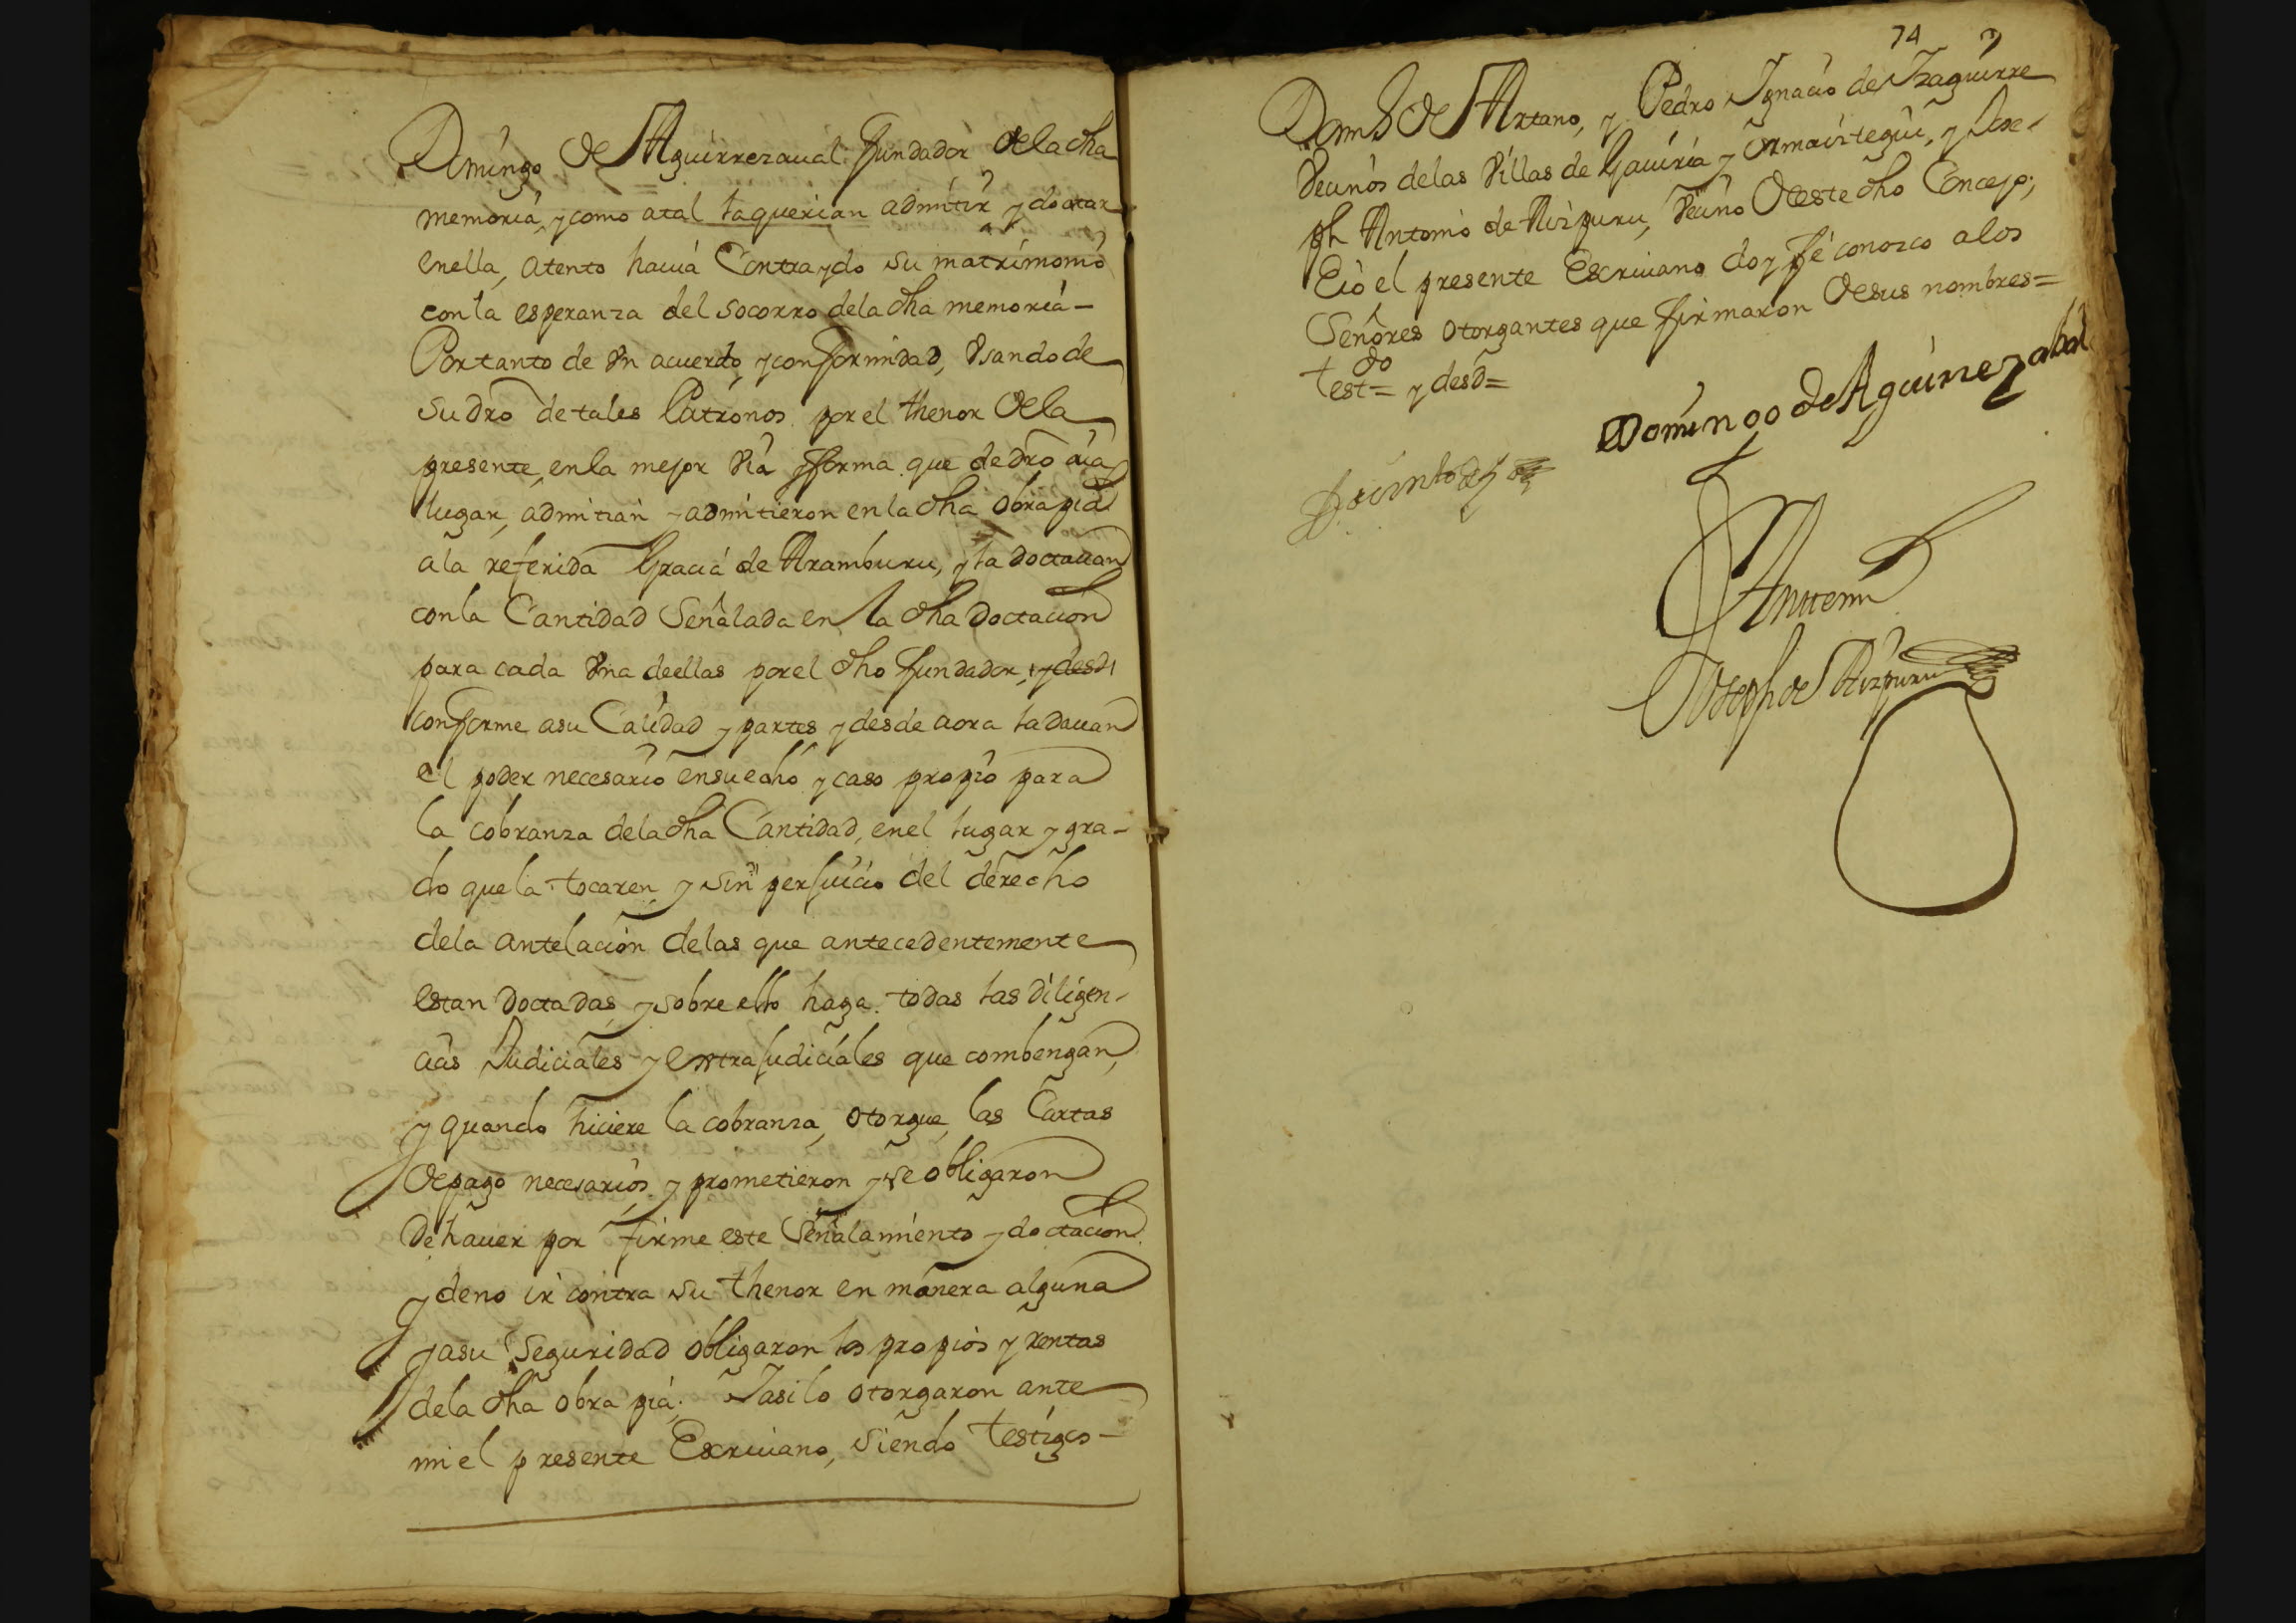 Domingo de Aguirrezaual fundador dela dha
memoria, y como atal la querian admitir y doctar
enella, atento hauia Contraydo su matrimonio
con la esperanza del socorro dela dha memoria –
Portanto de Vn acuerdo y conformidad, Vsando de
su dro de tales Patronos por el thenor dela
presente, en la mejor Via y forma que de dro aia
lugar, admitian y admitieron en la dha obra pia
ala referida Gracia de Aramburu, y la doctauan
con la Cantidad Señalada en la dha doctacion
para cada Vna de ellas por el dho fundador, y desd
conforme asu Calidad y partes y desde aora la dauan
el poder necesario en su echo y caso propio para
la cobranza dela dha Cantidad, en el lugar y gra-
do que la tocaren, y sin perjuicio del derecho
dela antelacion delas que antecedentemente
estan doctadas, y sobre ello haga todas las diligen-
cias Judiciales y Extrajudiciales que combengan,
y quando hiciere la cobranza, otorgue las Cartas
de pago necesarios, y prometieron y se obligaron
de hauer por firme este Señalamiento y doctacion
y deno ir contra su thenor en manera alguna
y asu Seguridad obligaron los propios y rentas
dela dha obra pia. Y asi lo otorgaron ante
mi el presente Escriuano, siendo testigos –
74
Domo de Artano, y Pedro Ignacio de Yzaguirre
Vecinos delas Villas de Gauiria y Ormaiztegui, y Jose-
ph Antonio de Aizpuru, Vecino de este dho Concejo;
E io el presente Escriuano doy fé conozco a los
Señores otorgantes que firmaron de sus nombres =
testdo = y desd =
Domingo de Aguirrezabal
Jacinto de
Ante mi
Joseph de Aizpuru